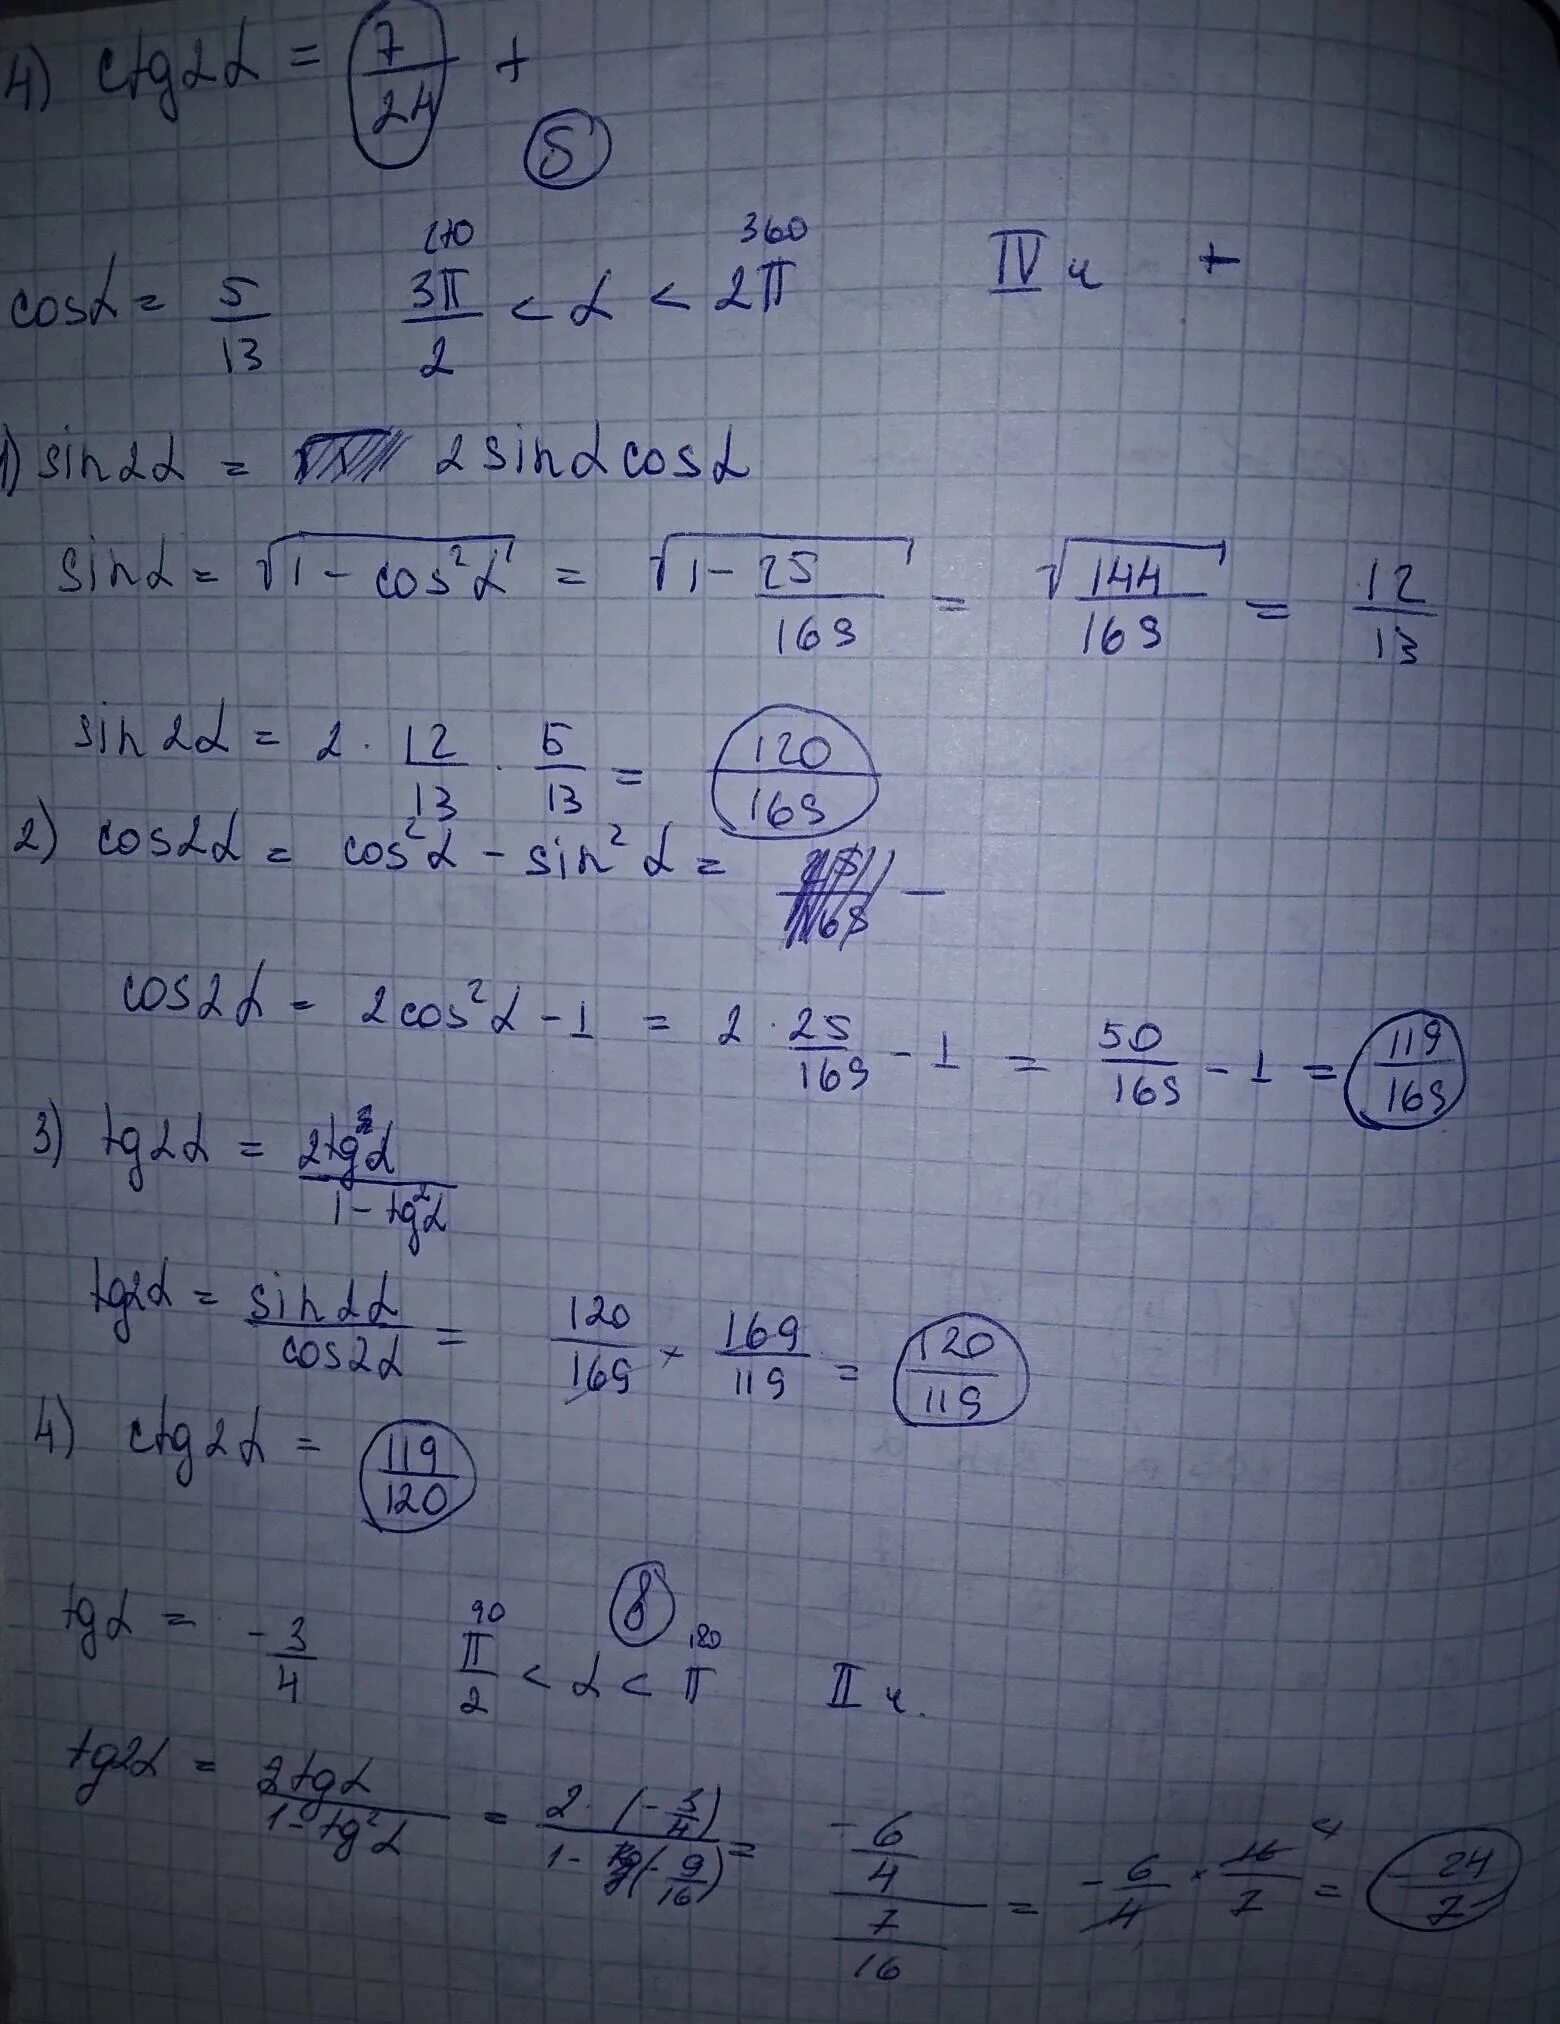 4) ctg2α = 7/24 +
5
cosα = 5/13 270 3π/2 < α < 360 2π IV ч +
1) sin2α = 2sinαcosα
sinα = √(1 - cos²α) = √(1 - 25/169) = √(144/169) = 12/13
sin2α = 2 · 12/13 · 5/13 = 120/169
2) cos2α = cos²α - sin²α = -
cos2α = 2cos²α - 1 = 2 · 25/169 - 1 = 50/169 - 1 = 119/169
3) tg2α = 2tgα/(1 - tg²α)
tg2α = sin2α/cos2α = 120/169 × 169/119 = 120/119
4) ctg2α = 119/120
8
tgα = -3/4 90 π/2 < α < 180 π II ч.
tg2α = 2tgα/(1 - tg²α) = 2·(-3/4)/(1 - (-9/16)) = (-6/4)/(7/16) = -6/4 × 16/7 4 = -24/7